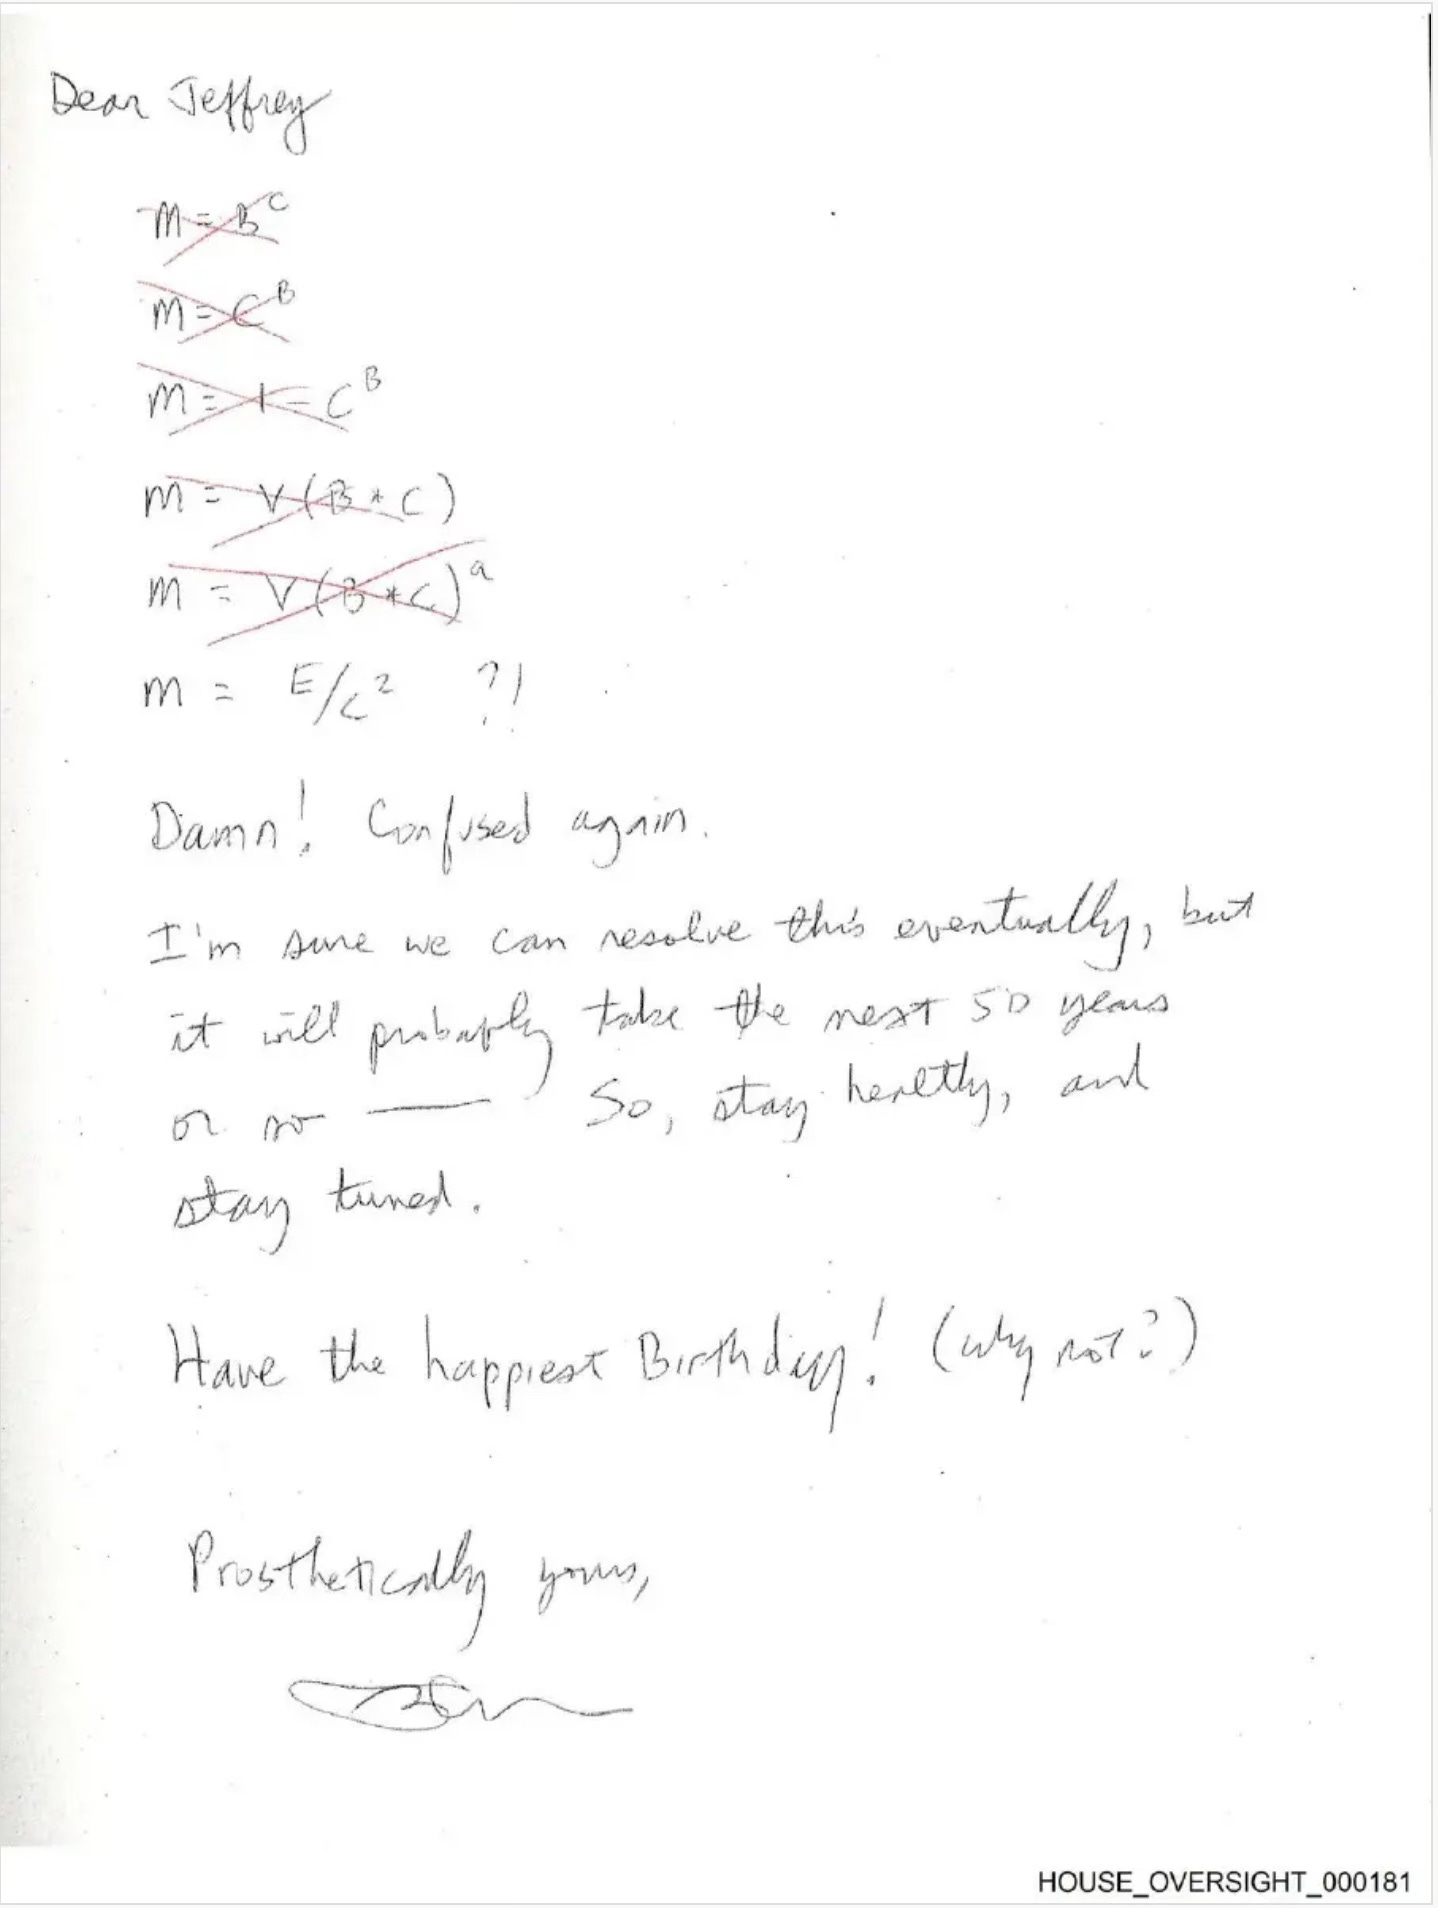 Dear Jeffrey
m = B^C
m = C^B
m = 1 = C^B
m = V(B*C)
m = V(B*C)^a
m = E/c² ?!
Damn! Confused again.
I'm sure we can resolve this eventually, but
it will probably take the next 50 years
or so — So, stay healthy, and
stay tuned.
Have the happiest Birthday! (why not?)
Prosthetically yours,
HOUSE_OVERSIGHT_000181